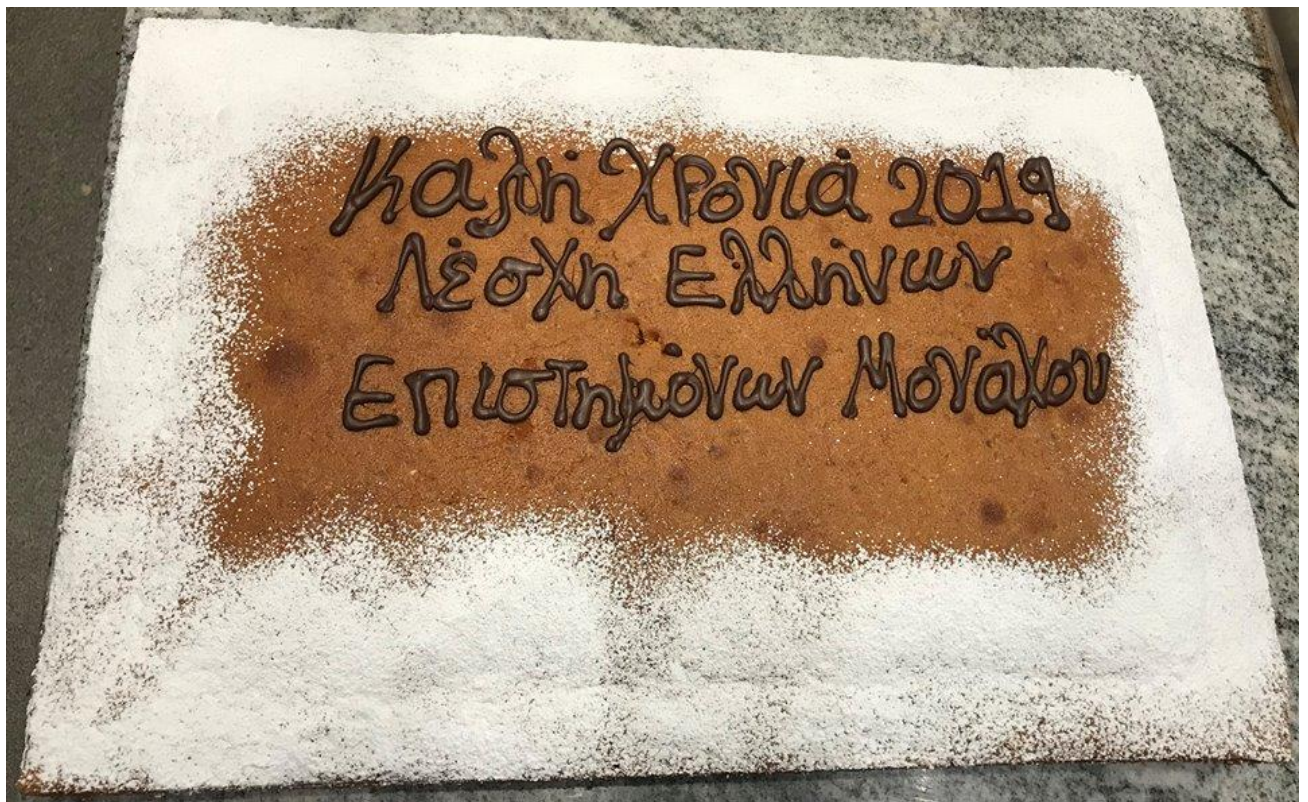 Καλή Χρονιά 2019
Λέσχη Ελλήνων
Επιστημόνων Μονάχου